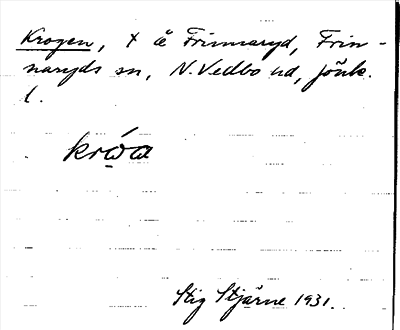 Krogen, × å Frinnaryd, Frin-
naryds sn, N. Vedbo hd, Jönk.
l.
Stig Stjärne 1931.